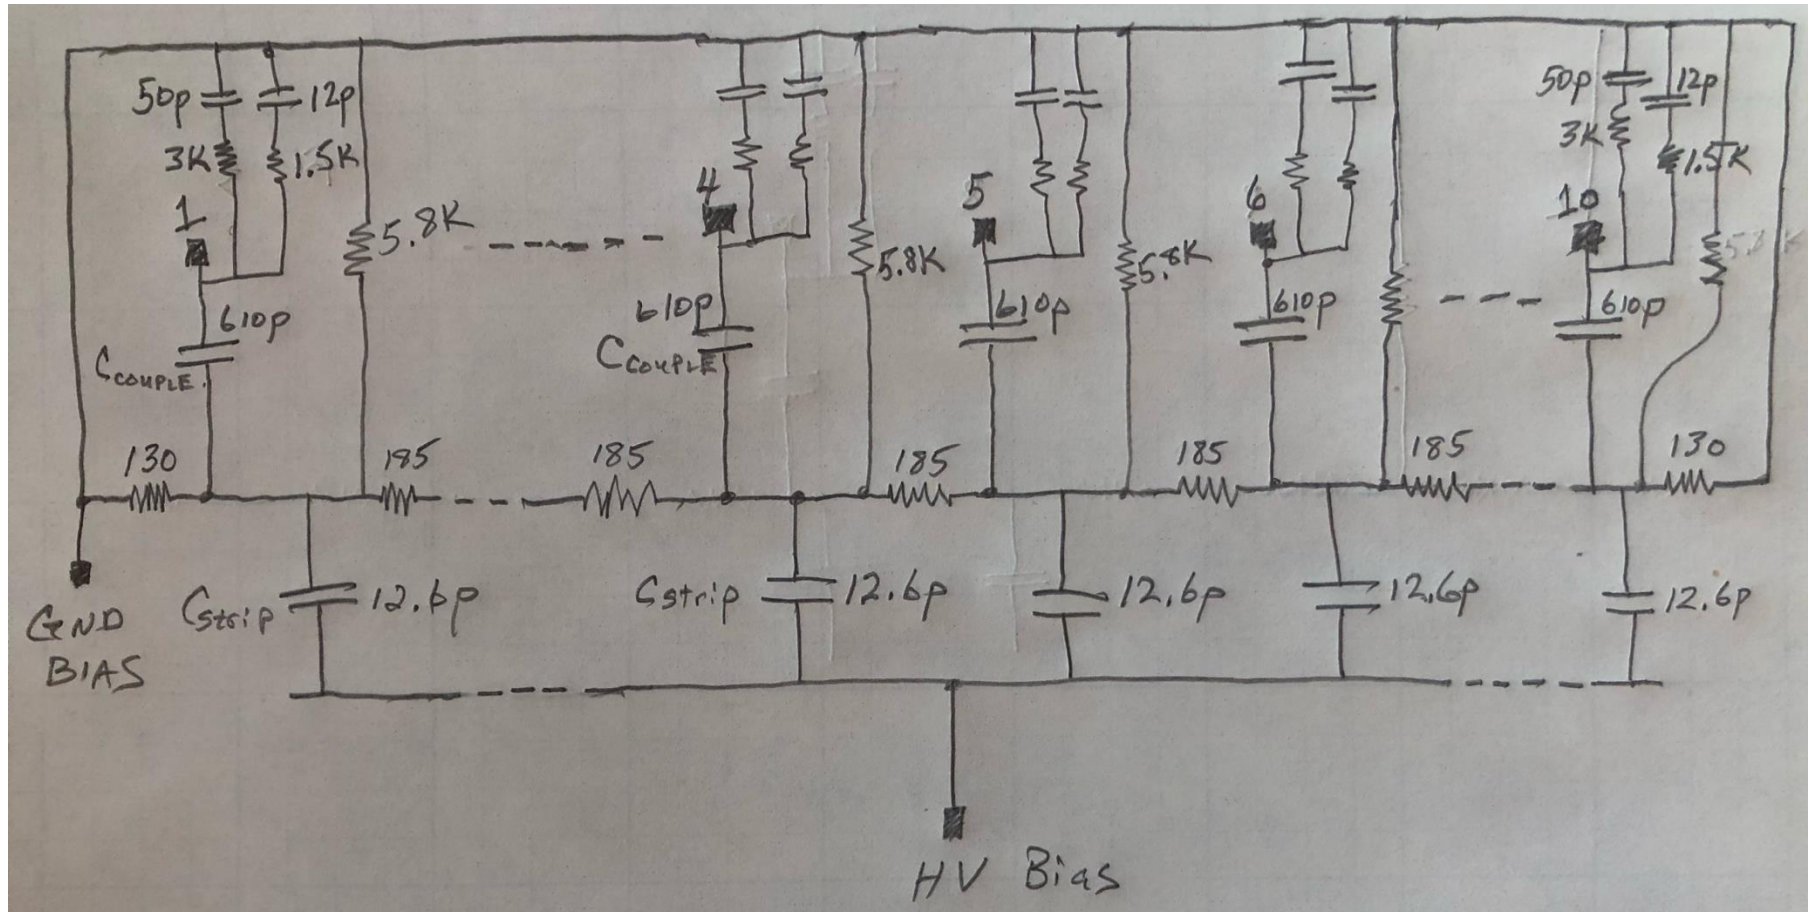 50p 12p
3K 1.5K
1
5.8K
610p
Ccouple.
4
5.8K
610p
Ccouple
5
5.8K
610p
6
610p
50p 12p
3K 1.5K
10
610p
130 185 185 185 185 185 130
GND
BIAS
Cstrip 12.6p
Cstrip 12.6p
12.6p
12.6p
12.6p
HV Bias